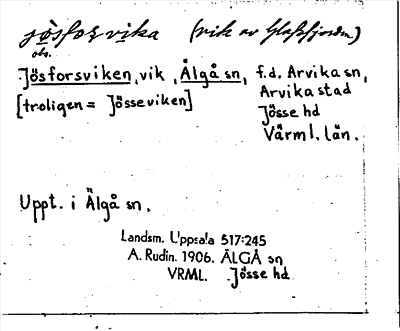 jösforsvika (vik av Glafsfjorden)
obs.
Jösforsviken, vik, Älgå sn, f.d. Arvika sn,
[troligen = Jösseviken] Arvika stad
Jösse hd
Värml. län.
Uppt. i Älgå sn.
Landsm. Uppsala 517:245
A. Rudin. 1906. ÄLGÅ sn
VRML. Jösse hd